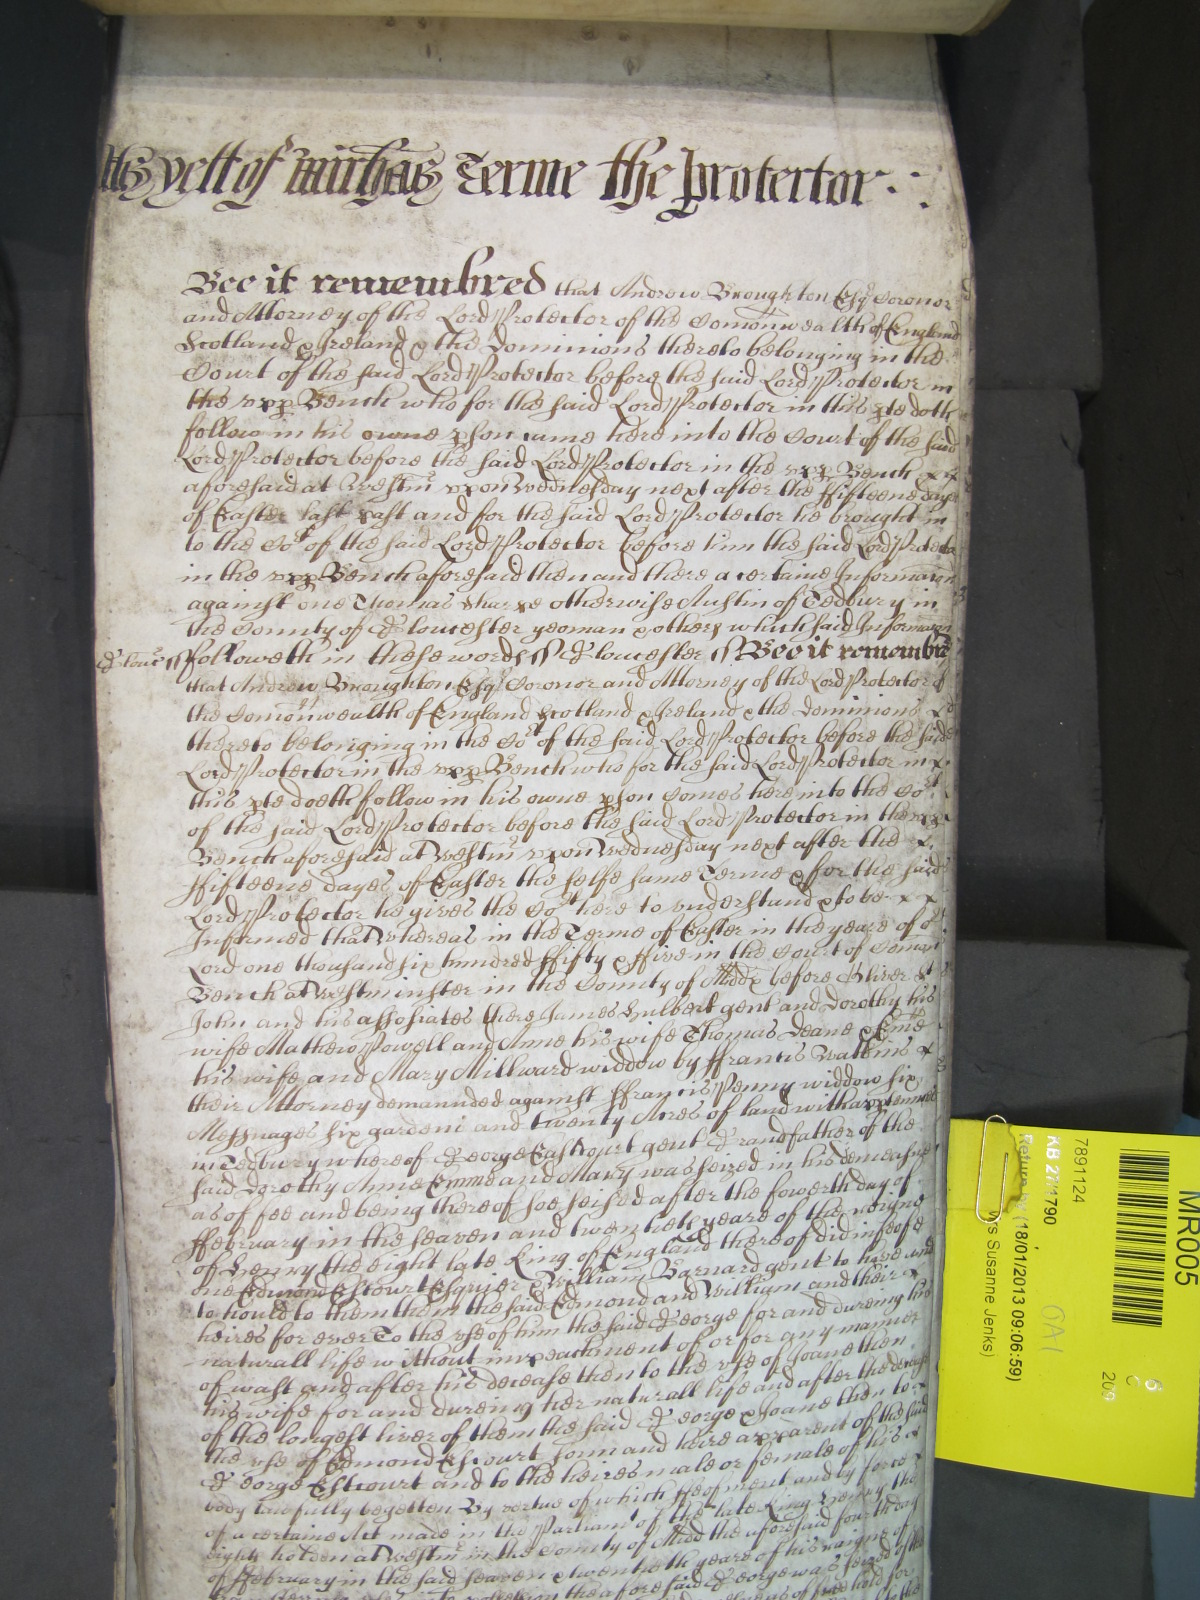 yett of Michas Terme the Protector
Bee it remembred that Andrew Broughton Esqr Coronor
and Attorney of the Lord Protector of the Comonwealth of England
Scotland & Ireland & the Dominions thereto belonging in the
Court of the said Lord Protector before the said Lord Protector in
the upp Bench who for the said Lord Protector in this pte doth
follow in his owne pson came here into the Court of the said
Lord Protector before the said Lord Protector in the upp Bench
aforesaid at Westmr upon Wednesday next after the ffifteene dayes
of Easter last past and for the said Lord Protector he brought in
to the Cort of the said Lord Protector before him the said Lord Protector
in the upp Bench aforesaid then and there a certaine Informacon
against one Thomas Sharpe otherwise Austin of Tedbury in
the County of Gloucester yeoman & others which said Informacon
Glouc ss followeth in these words ss Gloucester ss Bee it remembred
that Andrew Broughton Esqr Coronor and Attorney of the Lord Protector of
the Comonwealth of England Scotland & Ireland & the Dominions
thereto belonging in the Cort of the said Lord Protector before the said
Lord Protector in the upp Bench who for the said Lord Protector in
this pte doeth follow in his owne pson Comes here into the Cort
of the said Lord Protector before the said Lord Protector in the upp
Bench aforesaid at Westmr upon Wednesday next after the
ffifteene dayes of Easter the selfe same Terme & for the said
Lord Protector he gives the Cort here to understand & to be
Informed that whereas in the Terme of Easter in the yeare of or
Lord one thousand six hundred ffifty & ffive in the Court of Comon
Bench at Westminster in the County of Middx before Oliver St
John and his assosiates there James Hulbert gent and Dorothy his
wife Mathew Powell and Anne his wife Thomas Deane & Eme
his wife and Mary Millward widdow by ffrancis Watkins
their Attorney demaunded against ffrancis Penny widdow six
Messuages six gardens and twenty Acres of land with apptennces
in Tedbury whereof George Eastcourt gent Grandfather of the
said Dorothy Anne Emme and Mary was seized in his demeasne
as of fee and being thereof soe seised after the fowerth day of
ffebruary in the seaven and twentieth yeare of the raigne
of Henry the eight late King of England thereof did infeofe
one Edmond Estcourt Esquier & William Barnard gent to have and
to hould to them the said Edmond and William and their
heires for ever To the use of him the said George for and dureing his
naturall life without impeachment of or for any manner
of wast and after his decease then to the use of Joane then
his wife for and dureing her naturall life and after the decease
of the longest liver of them the said George & Joane then to
the use of Edmond Estcourt sonn and heire apparent of the said
George Estcourt and to the heires male or female of his
body lawfully begotten By vertue of which ffeofment and by force
of a certaine Act made in the Parliamt of the late King Henry the
eight holden at Westmr in the County of Midd the aforesaid fourth day
of ffebruary in the said seaven & twentieth yeare of his raigne
the aforesaid George was seized of the
MR005
7891124
209
KB 27/1790
Return by (18/01/2013 09:06:59)
Susanne Jenks)